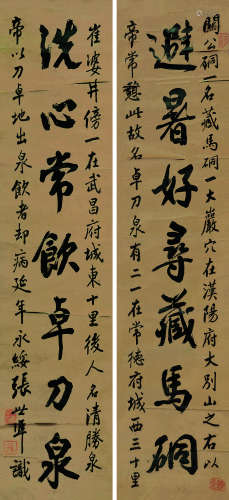 關公硐一名藏馬硐一大巖穴在漢陽府大别山之右以
避暑好尋藏馬硐
帝常憩此故名卓刀泉有二一在常德府城西三十里
崔婆井傍一在武昌府城東十里後人名清勝泉
洗心常飲卓刀泉
帝以刀卓地出泉飲者却病延年永綏張世準識